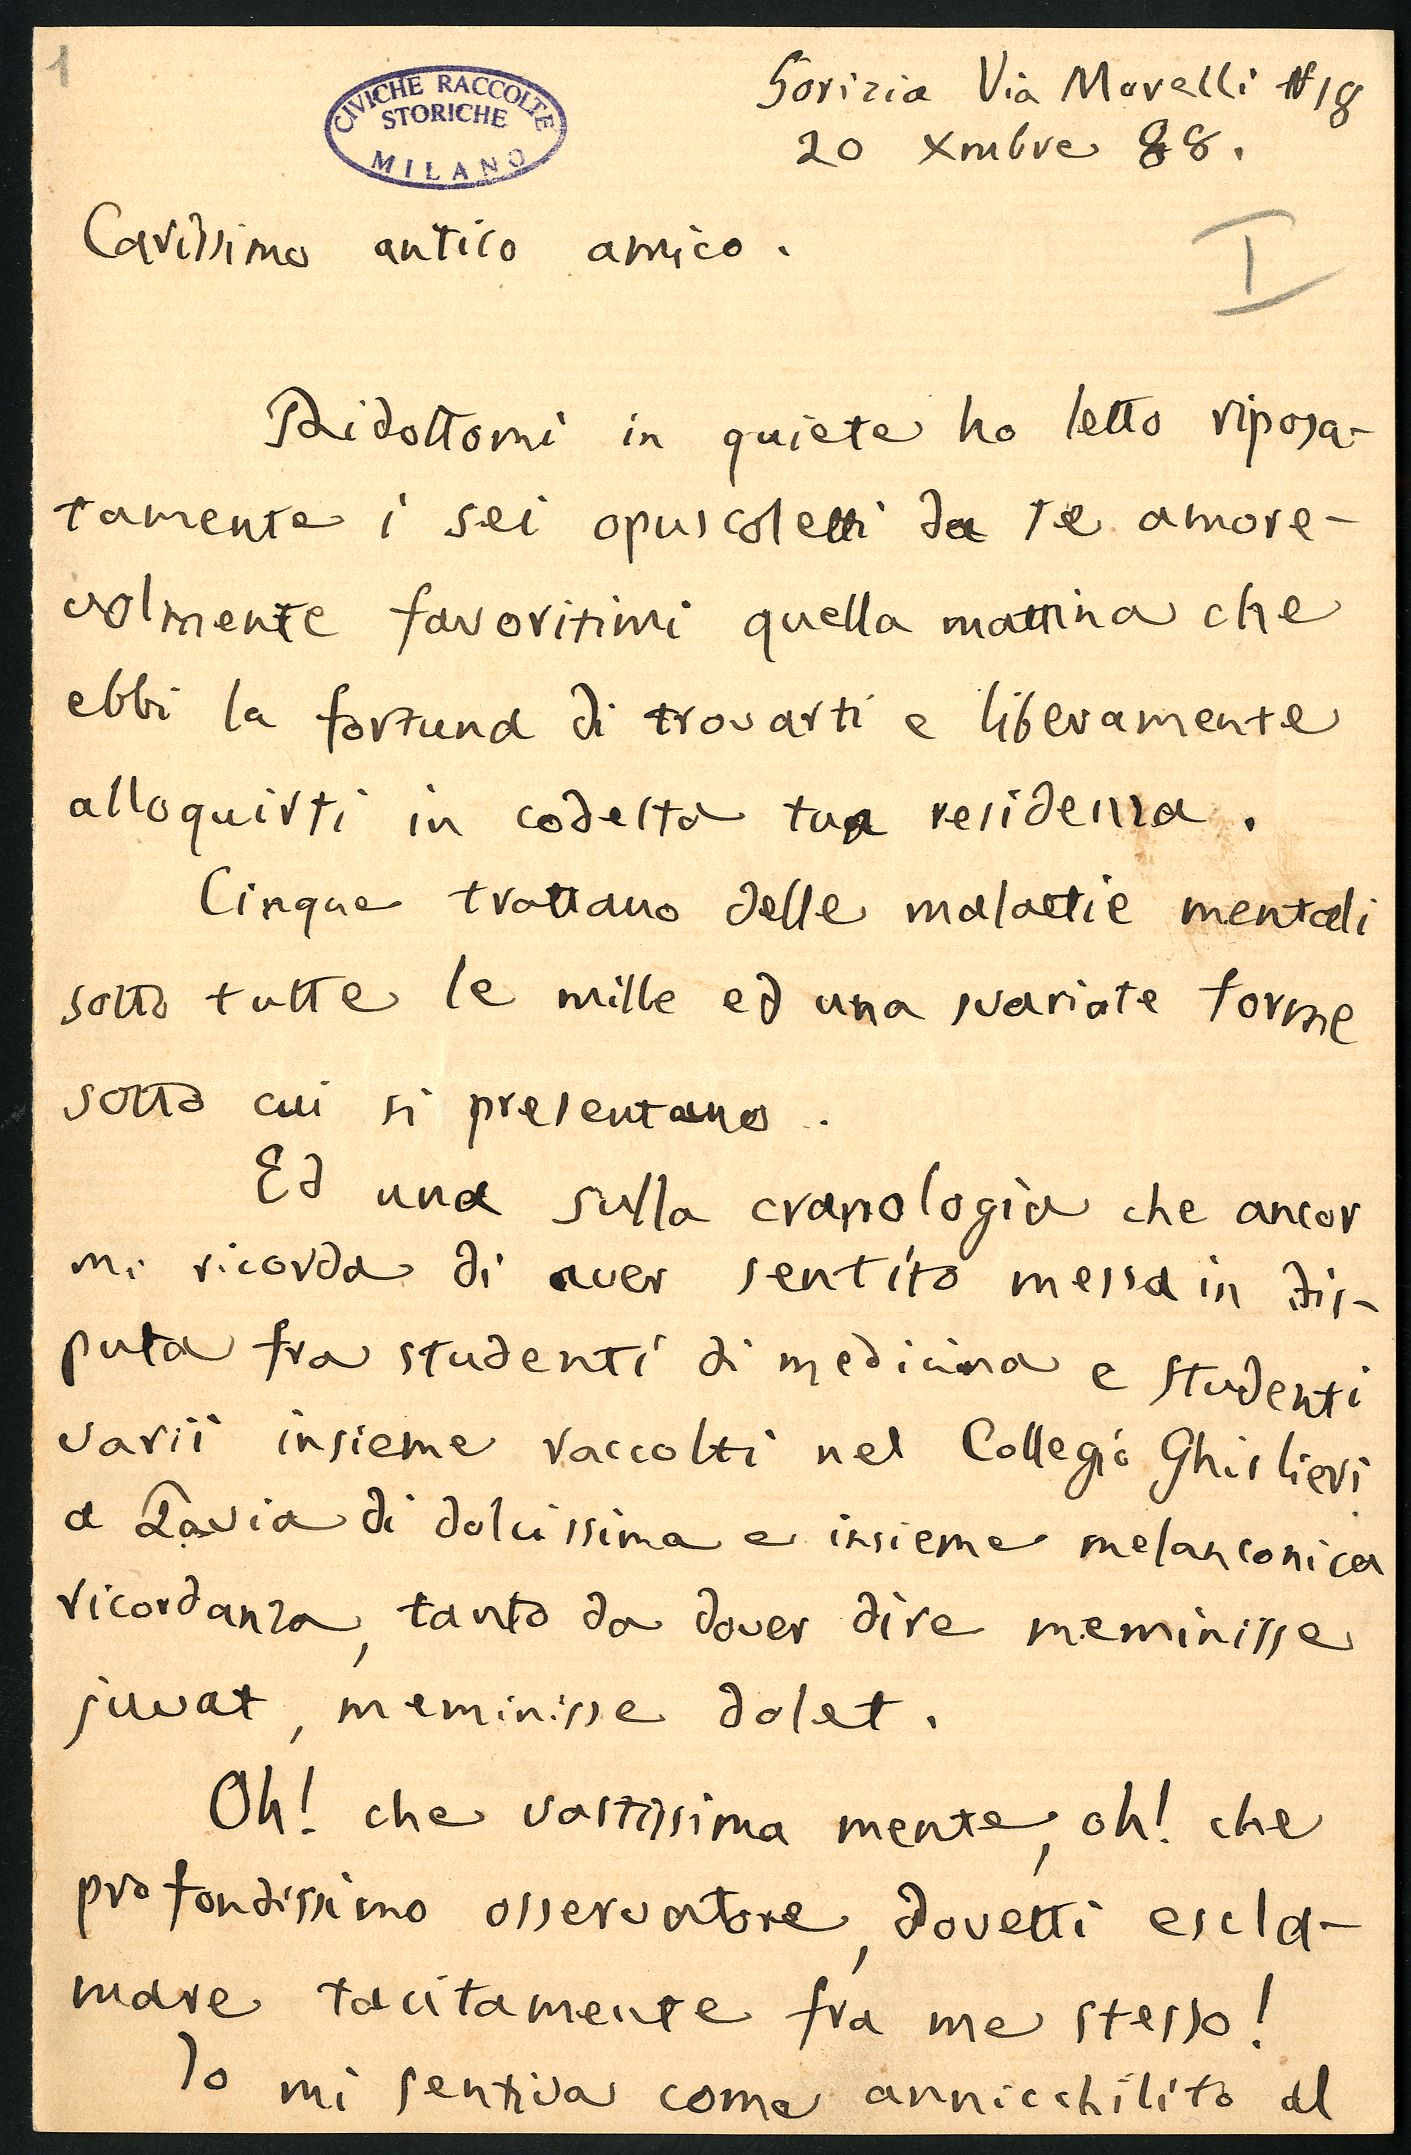 1
CIVICHE RACCOLTE
STORICHE
MILANO
Gorizia Via Morelli N 18
20 Xmbre 88.
Carissimo antico amico.
I
Ridottomi in quiete ho letto riposa-
tamente i sei opuscoletti da te amore-
volmente favoritimi quella mattina che
ebbi la fortuna di trovarti e liberamente
alloquirti in codesta tua residenza.
Cinque trattano delle malattie mentali
sotto tutte le mille ed una svariate forme
sotto cui si presentano.
Ed una sulla cranologia che ancor
mi ricorda di aver sentito messa in dis-
puta fra studenti di medicina e studenti
varii insieme raccolti nel Collegio Ghislieri
a Pavia di dolcissima e insieme melanconica
ricordanza, tanto da dover dire meminisse
juvat, meminisse dolet.
Oh! che vastissima mente, oh! che
profondissimo osservatore, dovetti escla-
mare tacitamente fra me stesso!
Io mi sentiva come annicchilito al